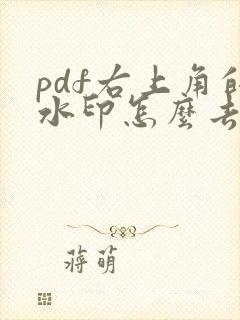 pdf右上角的
水印怎麽去
蒋萌